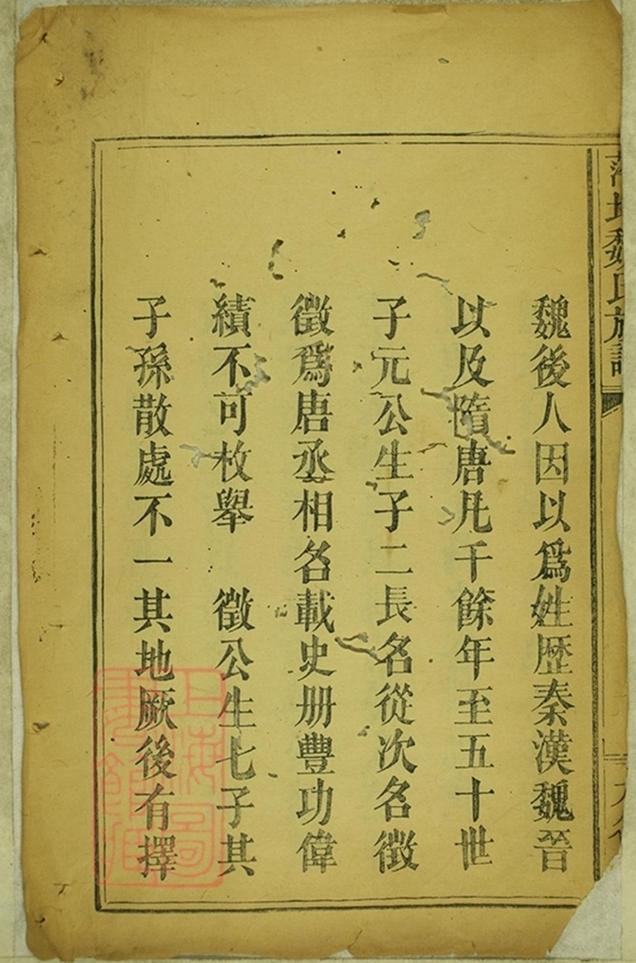 魏氏族譜
魏後人因以爲姓歷秦漢魏晉
以及隋唐凡千餘年至五十世
子元公生子二長名從次名徵
徵爲唐丞相名載史册豐功偉
績不可枚舉　徵公生七子其
子孫散處不一其地厥後有擇